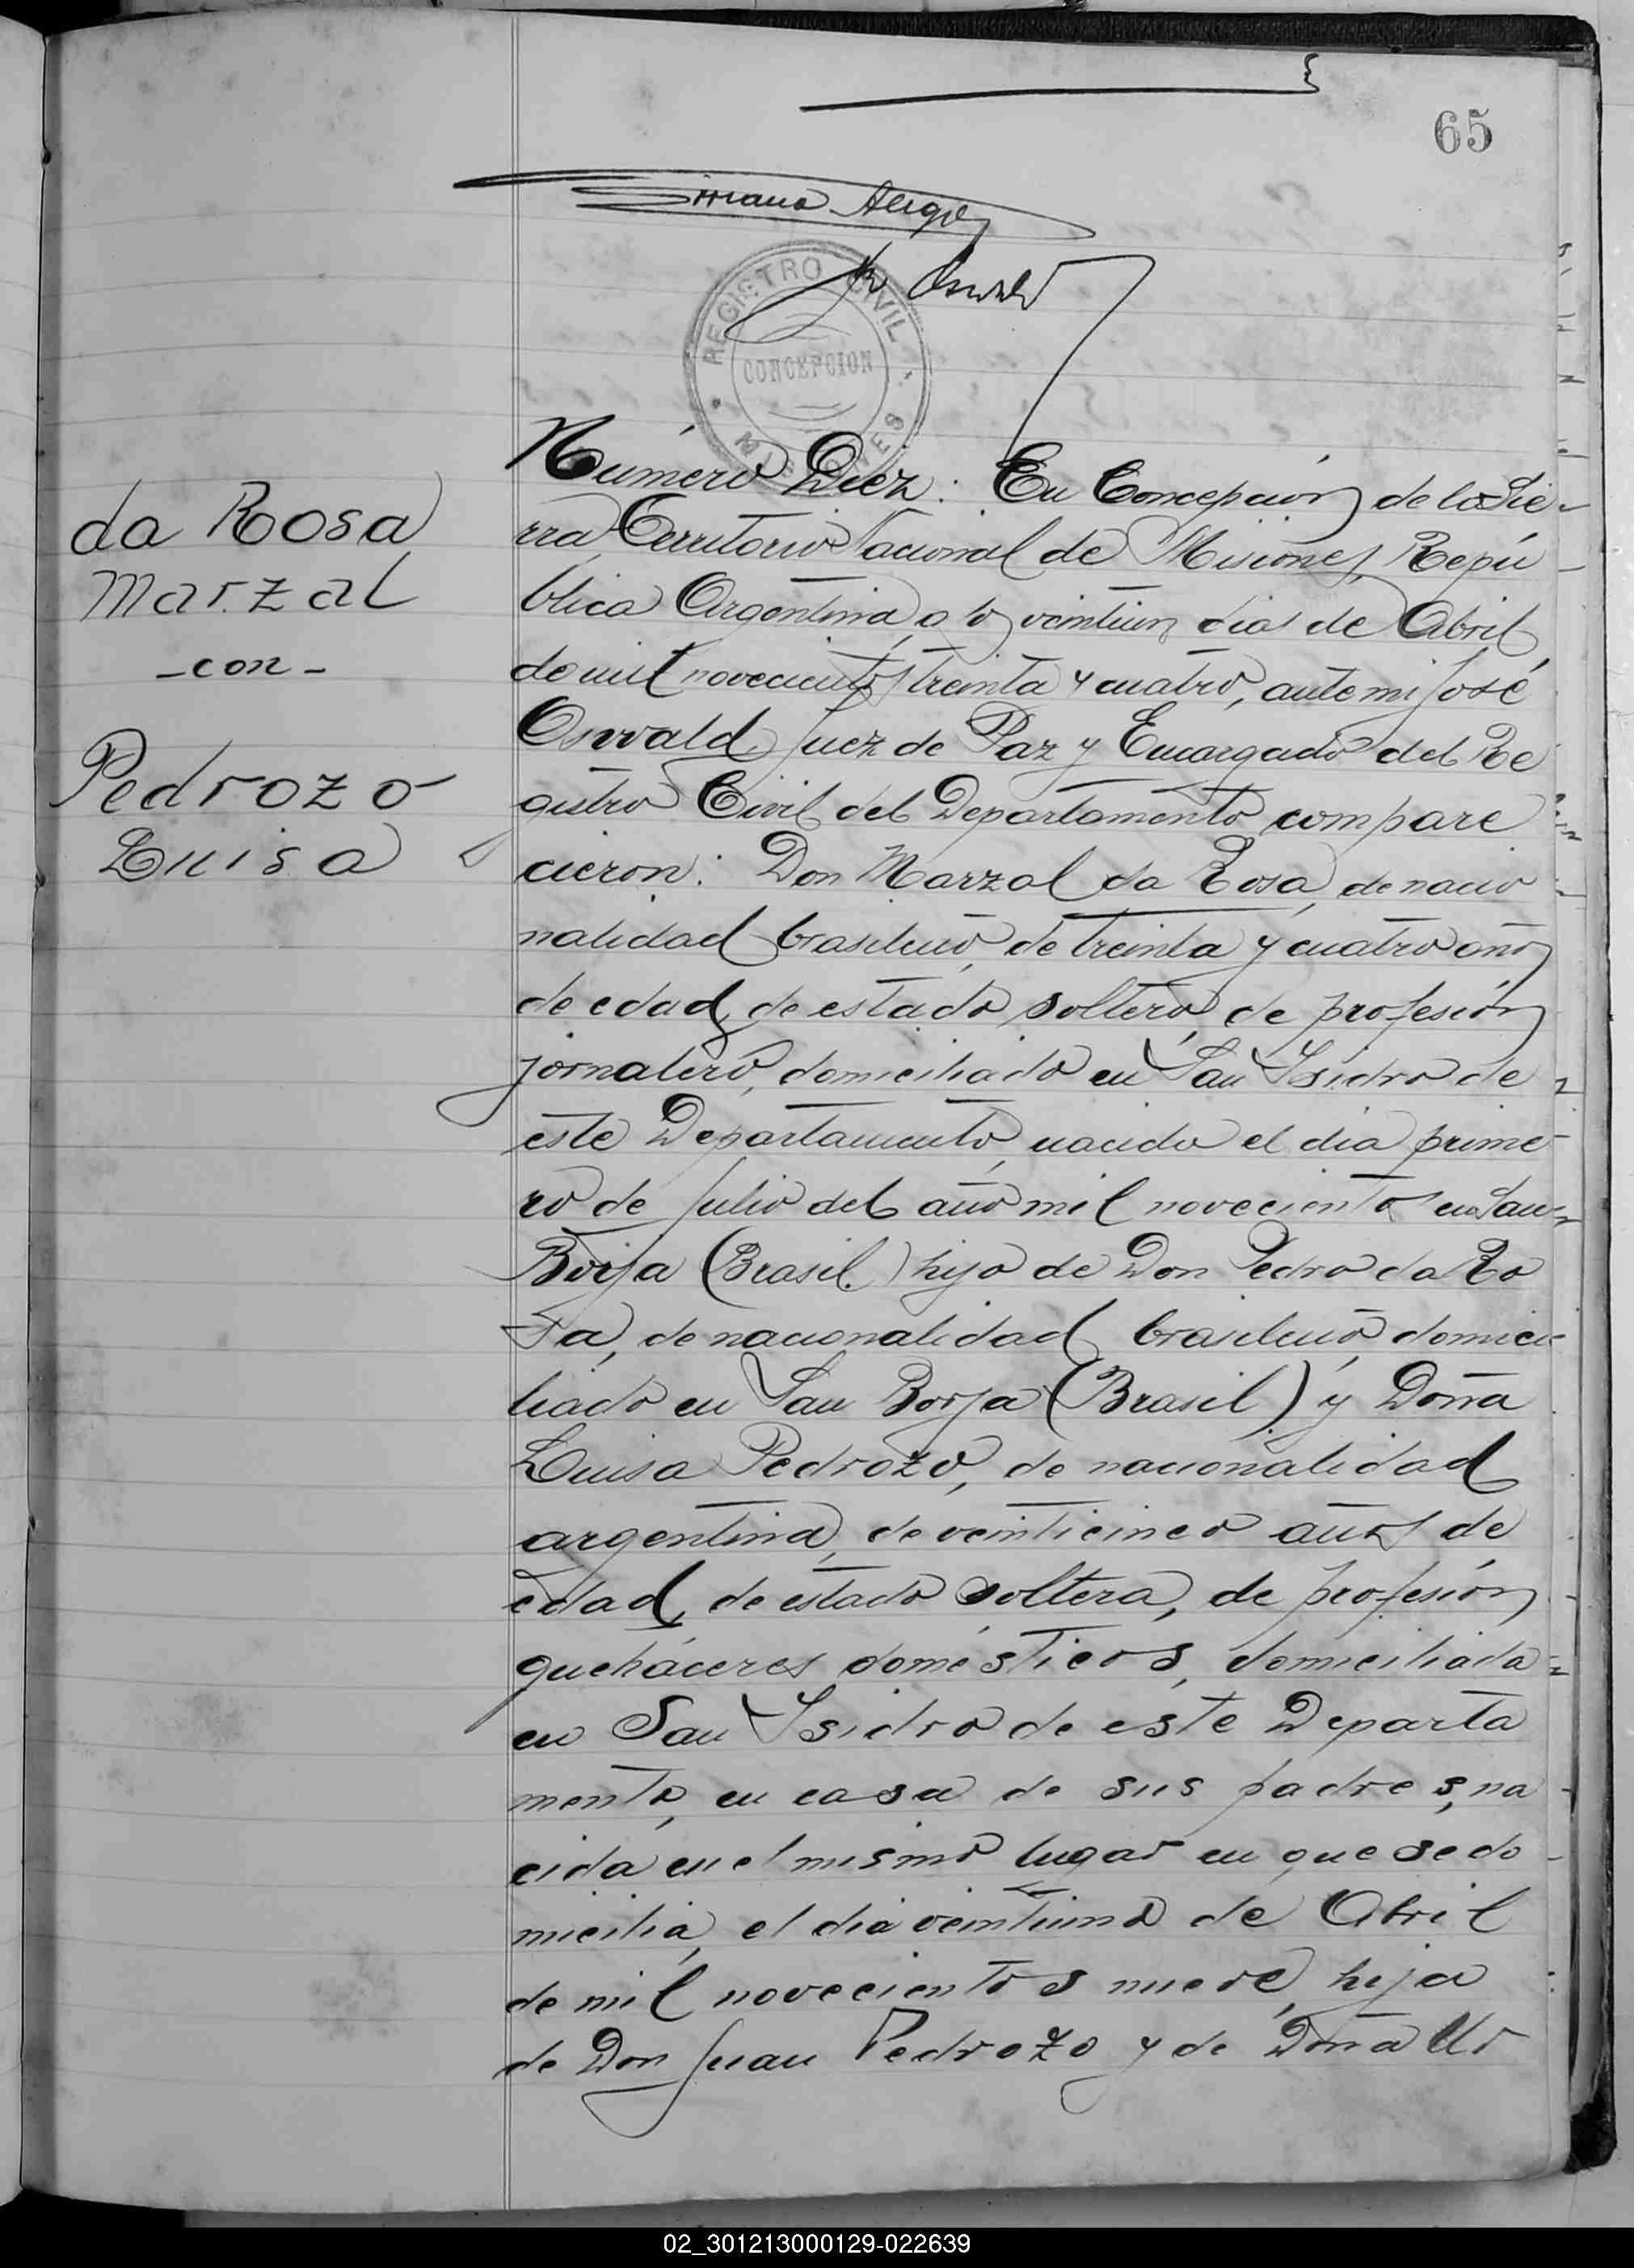 65
J. Oswald
REGISTRO CIVIL
CONCEPCION
MISIONES
da Rosa
Marzal
-con-
Pedrozo
Luisa
Número Diez: En Concepción de la Sie-
rra Territorio Nacional de Misiones, Repú-
blica Argentina, a los veintiun dias de Abril
de mil novecientos treinta y cuatro, ante mi José
Oswald Juez de Paz y Encargado del Re
gistro Civil del Departamento compare
cieron: Don Marzal da Rosa, de nacio
nalidad brasilero, de treinta y cuatro años
de edad, de estado soltero, de profesión
jornalero, domiciliado en San Isidro de
este Departamento, nacido el dia prime-
ro de Julio del año mil novecientos en San
Borja (Brasil) hijo de Don Pedro da Ro
sa, de nacionalidad brasilero, domici
liado en San Borja (Brasil) y Doña
Luisa Pedrozo, de nacionalidad
argentina, de veinticinco años de
edad, de estado soltera, de profesión
queháceres domésticos, domiciliada
en San Isidro de este Departa
mento, en casa de sus padres, na
cida en el mismo lugar en que se do-
micilia, el dia veintiuno de Abril
de mil novecientos nueve, hija
de Don Juan Pedrozo y de Doña Ur
02_301213000129-022639